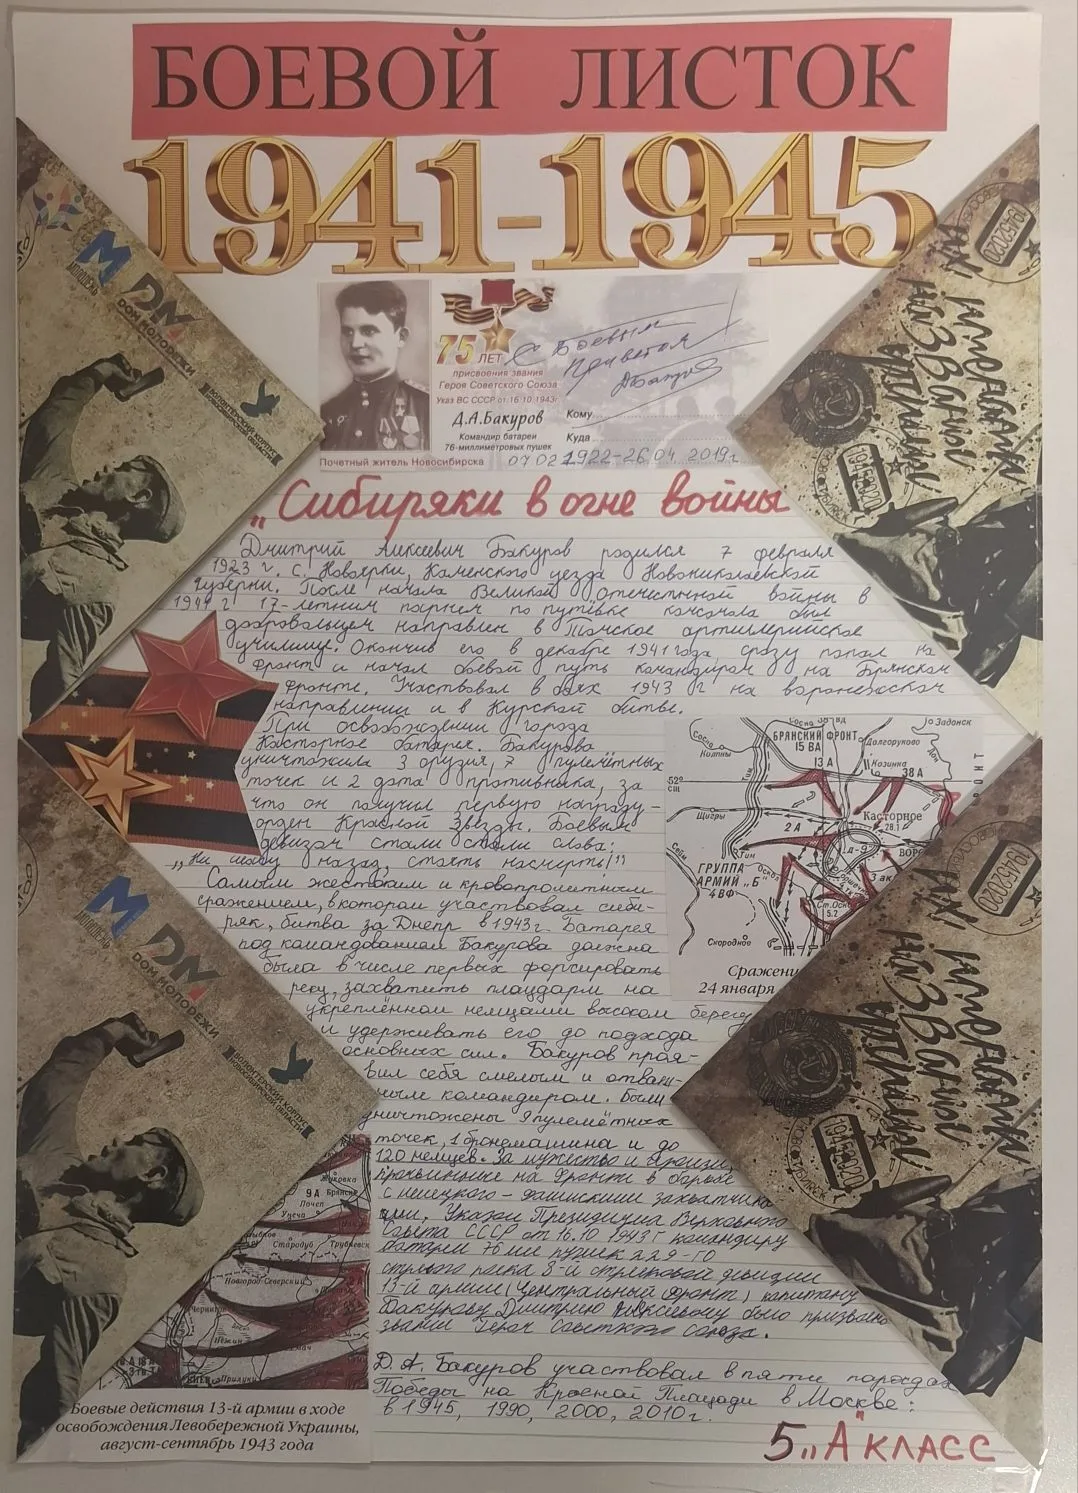 БОЕВОЙ ЛИСТОК
1941-1945
МОЛОДЁЖЬ
DM
ДОМ МОЛОДЕЖИ
ВОЛОНТЕРСКИЙ КОРПУС
НОВОСИБИРСКОЙ ОБЛАСТИ
1945-2020
75 ЛЕТ
присвоения звания
Героя Советского Союза
Указ ВС СССР от 16.10.1943г
Д.А.Бакуров
Командир батареи
76-миллиметровых пушек
Почетный житель Новосибирска
С Боевым
Приветом!
ДБакуров
Кому
Куда
07 02 1922-26.04.2019г
„Сибиряки в огне войны
Дмитрий Алексеевич Бакуров родился 7 февраля
1923 г. с. Новоярки, Каменского уезда Новониколаевской
губернии. После начала Великой Отечественной войны в
1941 г 17-летним парнем по путёвке комсомола был
добровольцем направлен в Томское артиллерийское
училище. Окончив его в декабре 1941 года, сразу попал на
фронт и начал боевой путь командиром на Брянском
фронте. Участвовал в боях 1943 г на воронежском
направлении и в Курской битве.
При освобождении города
Касторное батарея Бакурова
уничтожила 3 орудия, 7 пулемётных
точек и 2 дота противника, за
что он получил первую награду-
орден Красной Звезды. Боевым
девизом стали стали слова:
„Ни шагу назад, стоять насмерть!"
Самым жестоким и кровопролитным
сражением, в котором участвовал сиби-
ряк, битва за Днепр в 1943г. Батарея
под командованием Бакурова должна
была в числе первых форсировать
реку, захватить плацдарм на
укреплённом немцами высоком берегу
и удерживать его до подхода
основных сил. Бакуров проя-
вил себя смелым и отваж-
ным командиром. Были
уничтожены 9 пулемётных
точек, 1 бронемашина и до
120 немцев. За мужество и героизм,
проявленные на фронте в борьбе
с немецко-фашистскими захватчика
ми, Указом Президиума Верховного
Совета СССР от 16.10 1943г командиру
батареи 76 мм пушек 229-го
стрелкового полка 8-й стрелковой дивизии
13-й армии (Центральный фронт) капитану
Бакурову Дмитрию Алексеевичу было присвоено
звание Героя Советского Союза.
Д. А. Бакуров участвовал в пяти парадах
Победы на Красной Площади в Москве:
в 1945, 1990, 2000, 2010г.
5 „А" КЛАСС
БРЯНСКИЙ ФРОНТ
15 ВА
Задонск
Долгоруково
Козинка
13 А
38 А
Касторное
28.1
2 А
Щигры
Тим
ГРУППА
АРМИЙ „Б"
4 ВФ
Скородное
Сражени
24 января
9 А
Жуковка
Почеп
Унеча
Стародуб
Новгород-Северский
Чернигов
Нежин
Прилуки
Боевые действия 13-й армии в ходе
освобождения Левобережной Украины,
август-сентябрь 1943 года